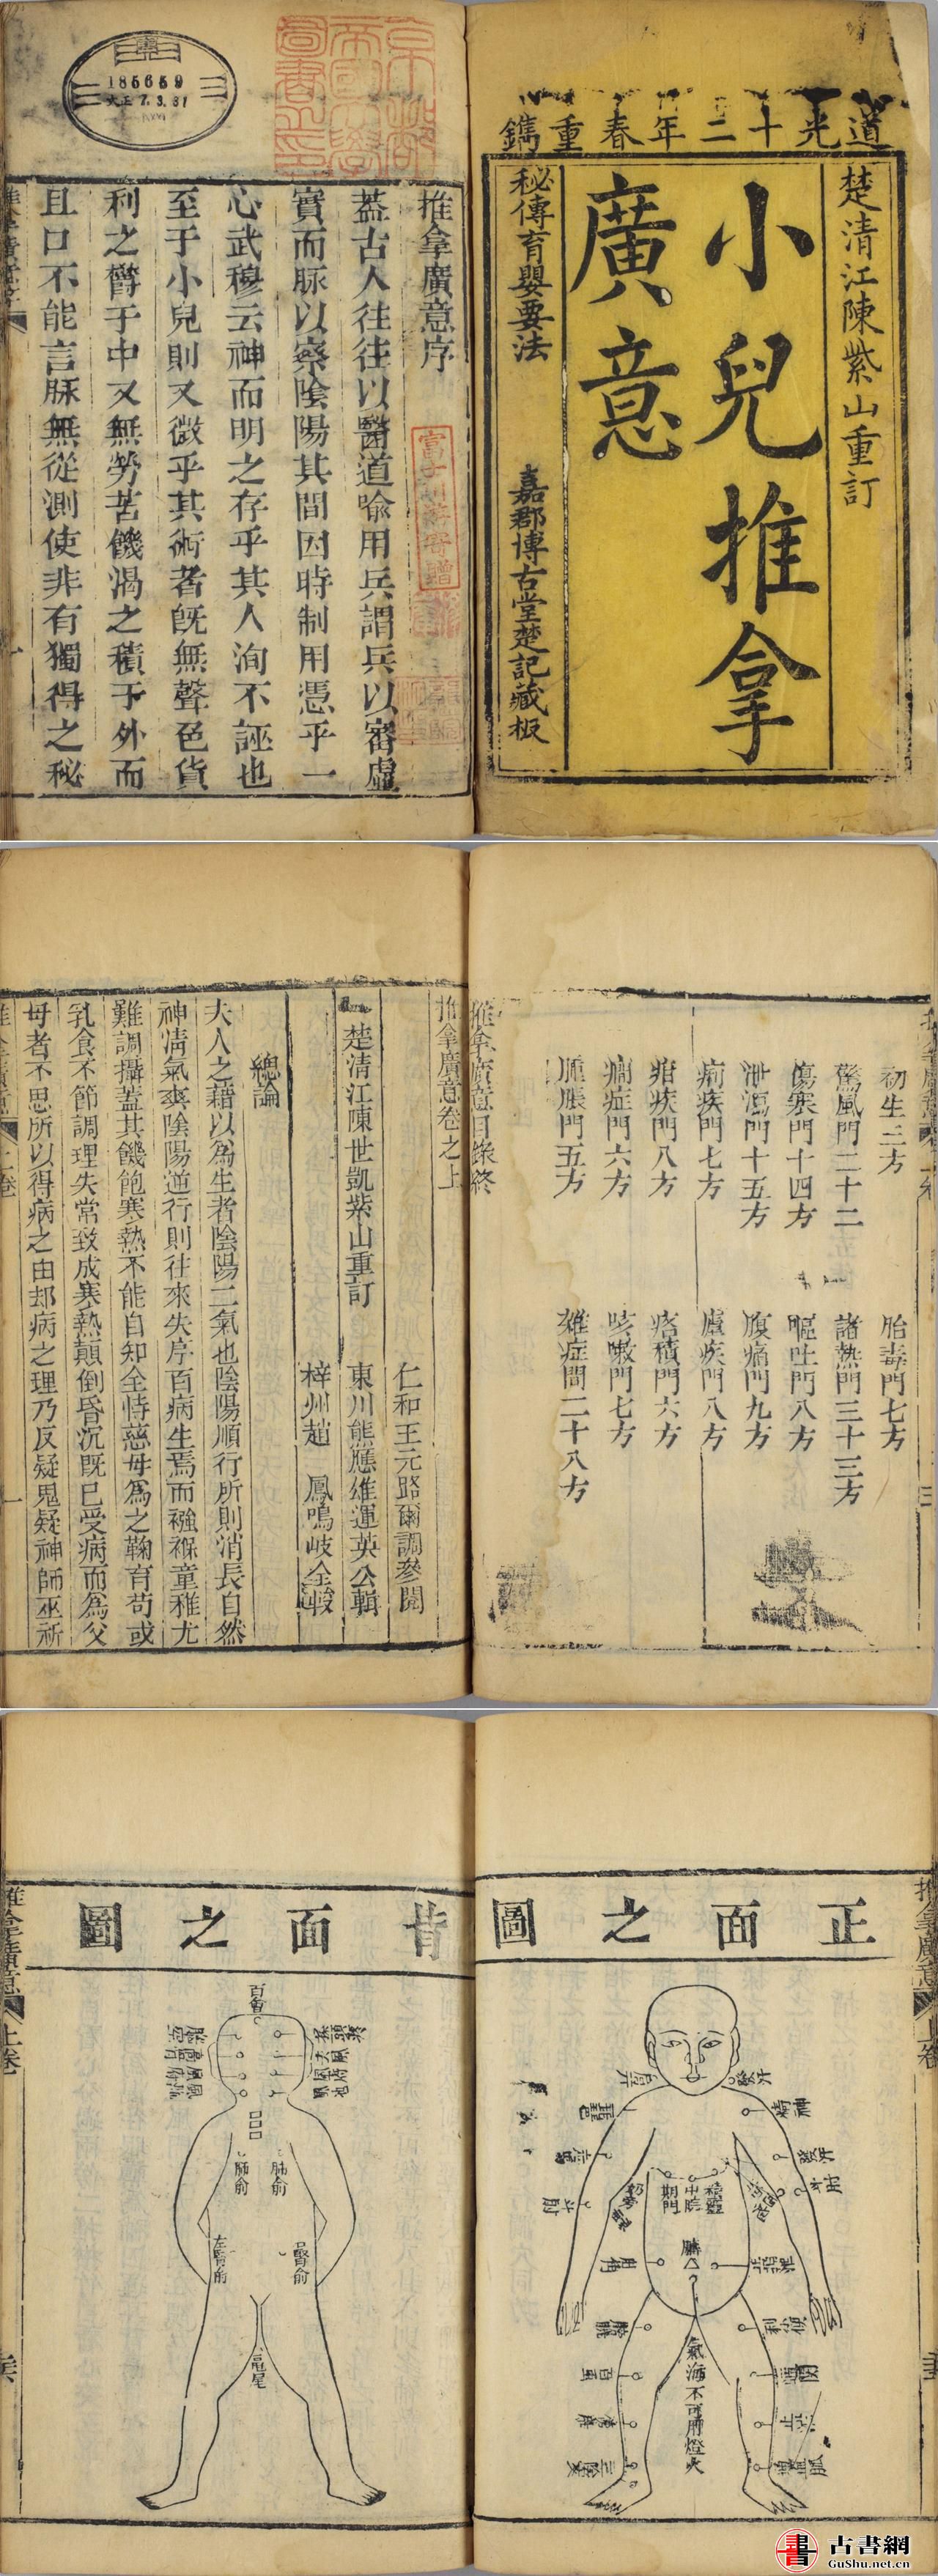 道光十二年春重鐫
楚清江陳紫山重訂
小兒推拿
廣意
秘傳育嬰要法
嘉郡博古堂楚記藏板
185659
大正7.3.31
京都
帝國大學
圖書之印
推拿廣意序
蓋古人往往以醫道喻用兵謂兵以審虛
實而脉以察陰陽其間因時制用憑乎一
心武穆云神而明之存乎其人洵不誣也
至于小兒則又微乎其術者旣無聲色貨
利之欝于中又無勞苦饑渴之積于外而
且口不能言脉無從測使非有獨得之秘
初生三方
胎毒門七方
驚風門二十二
諸熱門三十三方
傷寒門十四方
嘔吐門八方
泄瀉門十五方
腹痛門九方
痢疾門七方
瘧疾門八方
疳疾門八方
痞積門六方
癇症門六方
咳嗽門七方
腫脹門五方
雜症門二十八方
推拿廣意目錄終
推拿廣意卷之上
仁和王元路爾調參閱
楚清江陳世凱紫山重訂
東川熊應雄運英公輯
梓州趙 鳳鳴岐仝梓
總論
夫人之藉以為生者陰陽二氣也陰陽順行所則消長自然
神清氣爽陰陽逆行則往來失序百病生焉而襁褓童稚尤
難調攝蓋其饑飽寒熱不能自知全恃慈母為之鞠育苟或
乳食不節調理失常致成寒熱顛倒昏沉既已受病而為父
母者不思所以得病之由却病之理乃反疑鬼疑神師巫祈
正面之圖
肩井
琵琶
中脘
期門
臍
氣海不可用燈火
膝
百蟲
三陰交
背面之圖
百會
肺俞
肺俞
左腎俞
腎俞
龜尾
推拿廣意
上卷
古書網
GuShu.net.cn